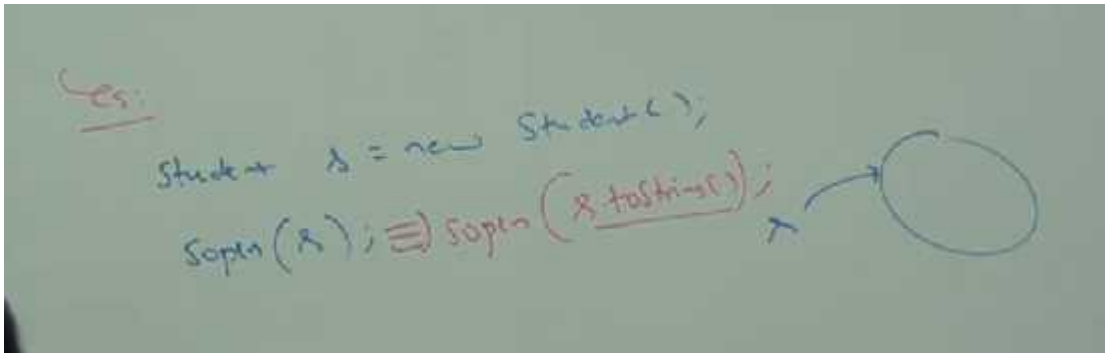 eg:
Student s = new Student();
Sopln(s); ≡) Sopln(s.toString());
s